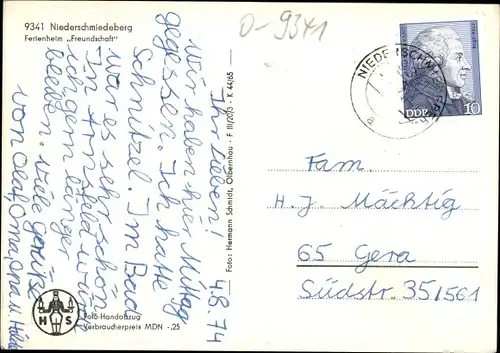 9341 Niederschmiedeberg
Ferienheim „Freundschaft"
D-9341
4.8.74
Ihr Lieben!
Wir haben hier Mittag
gegessen. Ich hatte
Schnitzel. Im Bad
war es sehr schön
In Arnsfeld würd
ich gern länger
bleiben. Viele Grüße
von Olaf, Oma, Opa u. Hilde
Foto: Hermann Schmidt, Olbernhau - F III/2013 - K 44/65
H S
Foto-Handabzug
Verbraucherpreis MDN -,25
NIEDERSCHMIEDEBERG
a
DDR 10
Fam.
H. J. Mächtig
65 Gera
Südstr. 35/561